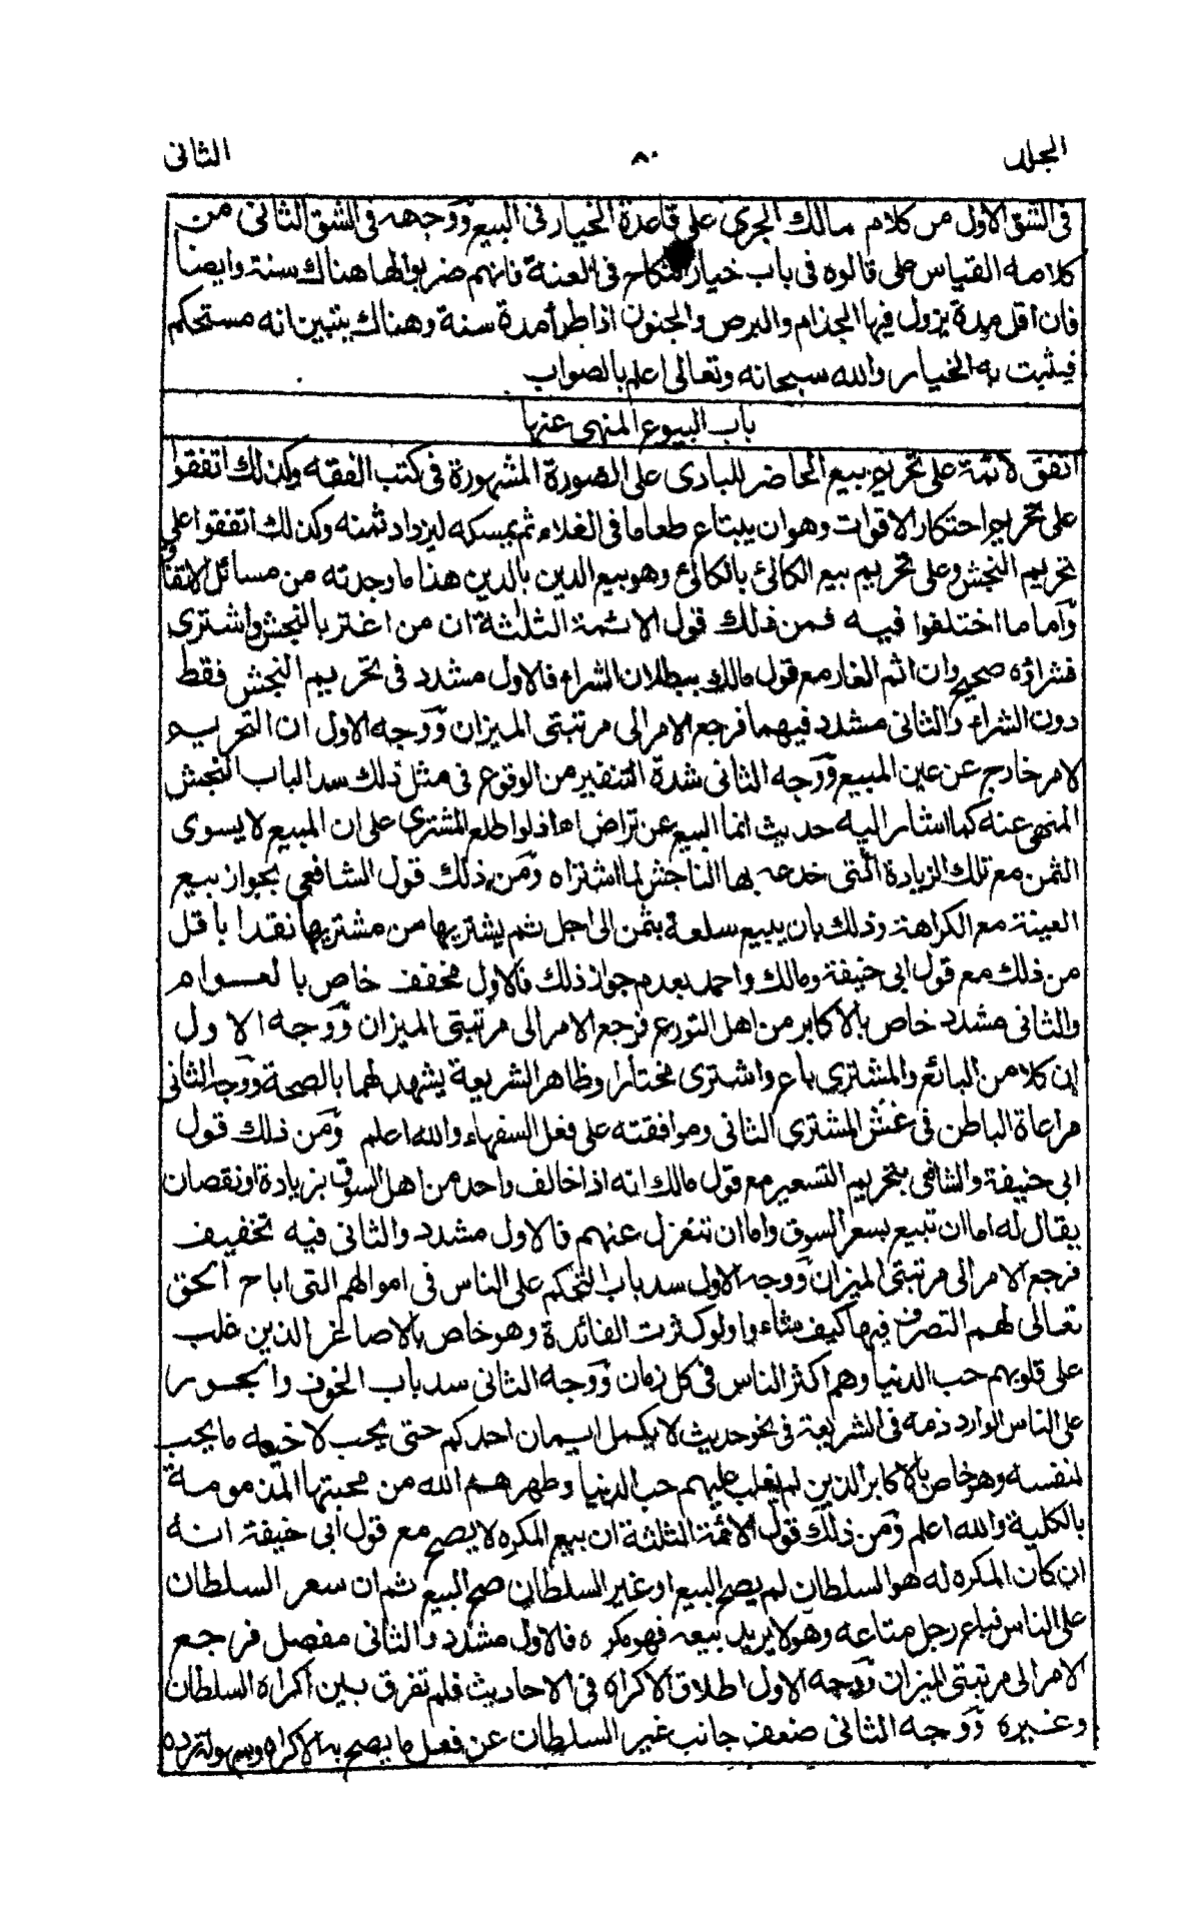 المجلد ٨٠ الثانى
فى الشق الاول من كلام مالك الجرى على قاعدة الخيار فى البيع ووجهه فى الشق الثانى من
كلامه القياس على قالوه فى باب خيار النكاح فى العنة فانهم ضربوا لها هناك سنة وايضا
فان أقل مدة يزول فيها الجذام والبرص والجنون اذا طرأ مدة سنة وهناك يتبين انه مستحكم
فيثبت به الخيار والله سبحانه وتعالى اعلم بالصواب
باب البيوع المنهى عنها
اتفق لائمة على تحريم بيع الحاضر للبادى على الصورة المشهورة فى كتب الفقه وكذلك اتفقوا
على تحريم احتكار الاقوات وهو ان يبتاع طعاما فى الغلاء ثم يمسكه ليزداد ثمنه وكذلك اتفقوا على
تحريم النجش وعلى تحريم بيع الكالئ بالكالئ وهو بيع الدين بالدين هذا ما وجدته من مسائل الاتفاق
وأما ما اختلفوا فيه فمن ذلك قول الائمة الثلثة ان من اغتر بالنجش واشترى
فشراؤه صحيح وان اثم الغار مع قول مالك ببطلان الشراء فالاول مشدد فى تحريم النجش فقط
دون الشراء والثانى مشدد فيهما فرجع الامر الى مرتبتى الميزان ووجه الاول ان التحريم
لامر خارج عن عين المبيع ووجه الثانى شدة التنفير من الوقوع فى مثل ذلك سدا لباب النجش
المنهى عنه كما اشار اليه حديث انما البيع عن تراض اه اذ لو اطلع المشترى على ان المبيع لا يسوى
الثمن مع تلك الزيادة التى خدعه بها الناجش لما اشتراه ومن ذلك قول الشافعى بجواز بيع
العينة مع الكراهة وذلك بان يبيع سلعة بثمن الى اجل ثم يشتريها من مشتريها نقدا باقل
من ذلك مع قول ابى حنيفة ومالك واحمد بعدم جواز ذلك فالاول مخفف خاص بالعوام
والثانى مشدد خاص بالاكابر من اهل التورع فرجع الامر الى مرتبتى الميزان ووجه الاول
ان كلا من البائع والمشترى باع واشترى مختارا وظاهر الشريعة يشهد لهما بالصحة ووجه الثانى
مراعاة الباطن فى غش المشترى الثانى وموافقته على فعل السفهاء والله اعلم ومن ذلك قول
ابى حنيفة والشافعى بتحريم التسعير مع قول مالك انه اذا خالف واحد من اهل السوق بزيادة او نقصان
يقال له اما ان تبيع بسعر السوق واما ان تنعزل عنهم فالاول مشدد والثانى فيه تخفيف
فرجع الامر الى مرتبتى الميزان ووجه الاول سد باب التحكم على الناس فى اموالهم التى اباح الحق
تعالى لهم التصرف فيها كيف شاءوا ولو كثرت الفائدة وهو خاص بالاصاغر الذين غلب
على قلوبهم حب الدنيا وهم اكثر الناس فى كل زمان ووجه الثانى سد باب الخوف والجور
على الناس الوارد ذمه فى الشريعة فى نحو حديث لا يكمل ايمان احدكم حتى يحب لاخيه ما يحب
لنفسه وهو خاص بالاكابر الذين لم يغلب عليهم حب الدنيا وطهرهم الله من محبتها المذمومة
بالكلية والله اعلم ومن ذلك قول الائمة الثلثة ان بيع المكره لا يصح مع قول ابى حنيفة انه
ان كان المكره له هو السلطان لم يصح البيع او غير السلطان صح البيع ثم ان سعر السلطان
على الناس فباع رجل متاعه وهو لا يريد بيعه فهو مكره فالاول مشدد والثانى مفصل فرجع
الامر الى مرتبتى الميزان ووجه الاول اطلاق الاكراه فى الاحاديث فلم تفرق بين اكراه السلطان
وغيره ووجه الثانى ضعف جانب غير السلطان عن فعل ما يصح به الاكراه وسهولة رده